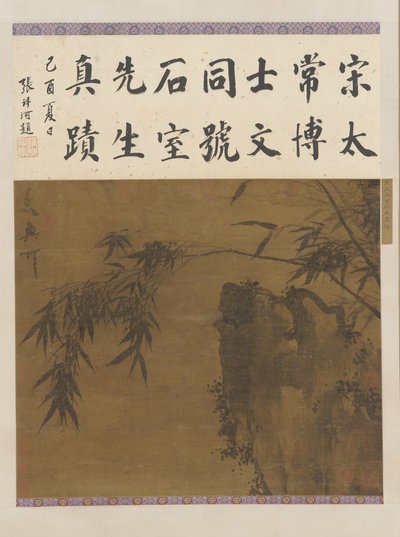 宋太
常博
士文
同號
石室
先生
真蹟
己酉夏日
張祥河題